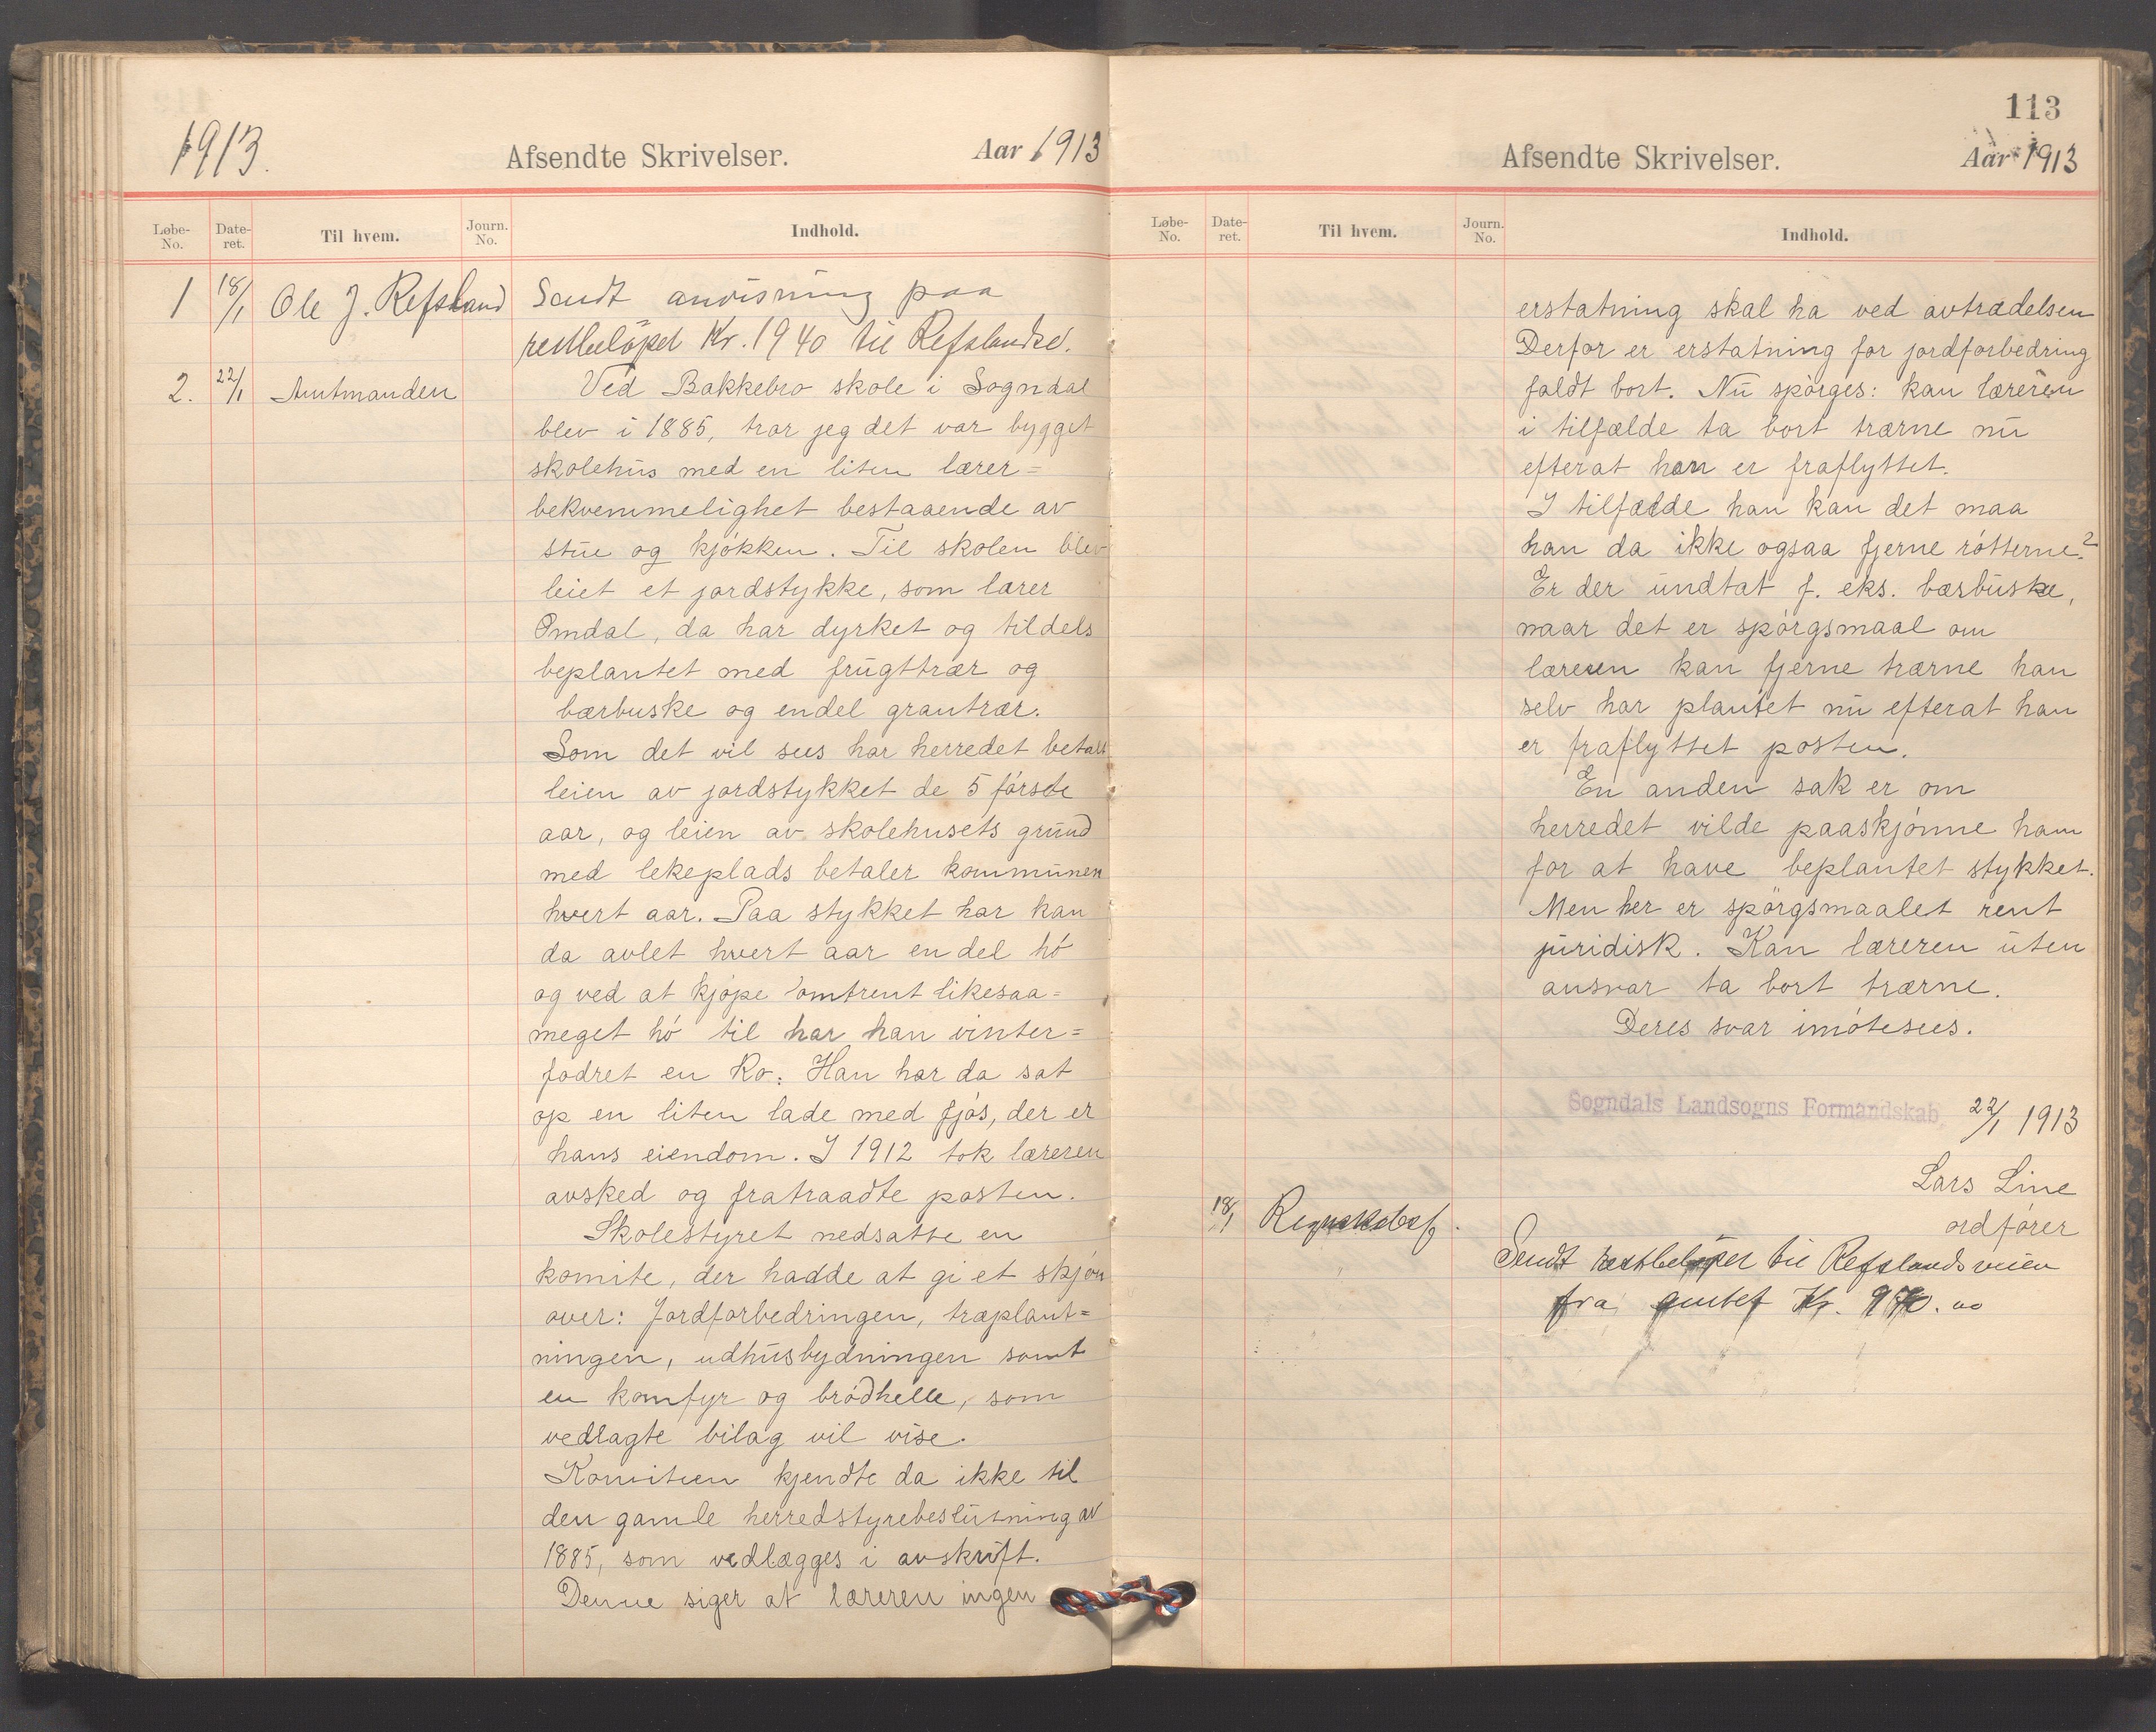 1913.
Afsendte Skrivelser.
Aar 1913
Løbe-No.
Date-ret.
Til hvem.
Journ. No.
Indhold.
1 18/1 Ole J. Refsland Sendt anvisning paa
restbeløpet Kr. 1940 til Refslandsv.
2. 22/1 Amtmanden Ved Bakkebro skole i Sogndal
blev i 1885, tror jeg det var bygget
skolehus med en liten lærer=
bekvemmelighet bestaaende av
stue og kjøkken. Til skolen blev
leiet et jordstykke, som lærer
Omdal, da har dyrket og tildels
beplantet med frugttrær og
bærbuske og endel grantrær.
Som det vil sees har herredet betalt
leien av jordstykket de 5 første
aar, og leien av skolehusets grund
med lekeplads betaler kommunen
hvert aar. Paa stykket har han
da avlet hvert aar en del hø
og ved at kjøpe omtrent likesaa=
meget hø til har han vinter=
fodret en ko. Han har da sat
op en liten lade med fjøs, der er
hans eiendom. I 1912 tok læreren
avsked og fratraadte posten.
Skolestyret nedsatte en
komite, der hadde at gi et skjøn
over: Jordforbedringen, træplant=
ningen, udhusbydningen samt
en komfyr og brødhelle, som
vedlagte bilag vil vise.
Komiteen kjendte da ikke til
den gamle herredstyrebeslutning av
1885, som vedlægges i avskrift.
Denne siger at læreren ingen
113
Afsendte Skrivelser.
Aar 1913
Løbe-No.
Date-ret.
Til hvem.
Journ. No.
Indhold.
erstatning skal ha ved avtrædelsen
Derfor er erstatning for jordforbedring
faldt bort. Nu spørges: kan læreren
i tilfælde ta bort trærne nu
efterat han er fraflyttet.
I tilfælde han kan det maa
han da ikke ogsaa fjerne røtterne?
Er der undtat f. eks. bærbuske,
naar det er spørgsmaal om
læreren kan fjerne trærne han
selv har plantet nu efterat han
er fraflyttet posten.
En anden sak er om
herredet vilde paaskjønne ham
for at have beplantet stykket.
Men her er spørgsmaalet rent
juridisk. Kan læreren uten
ansvar ta bort trærne.
Deres svar imøtesees.
Sogndals Landsogns Formandskab 22/1 1913
Lars Line
ordfører
18/1 Regnskabsf.
Sendt restbeløpet til Refslandsveien
fra Kr.